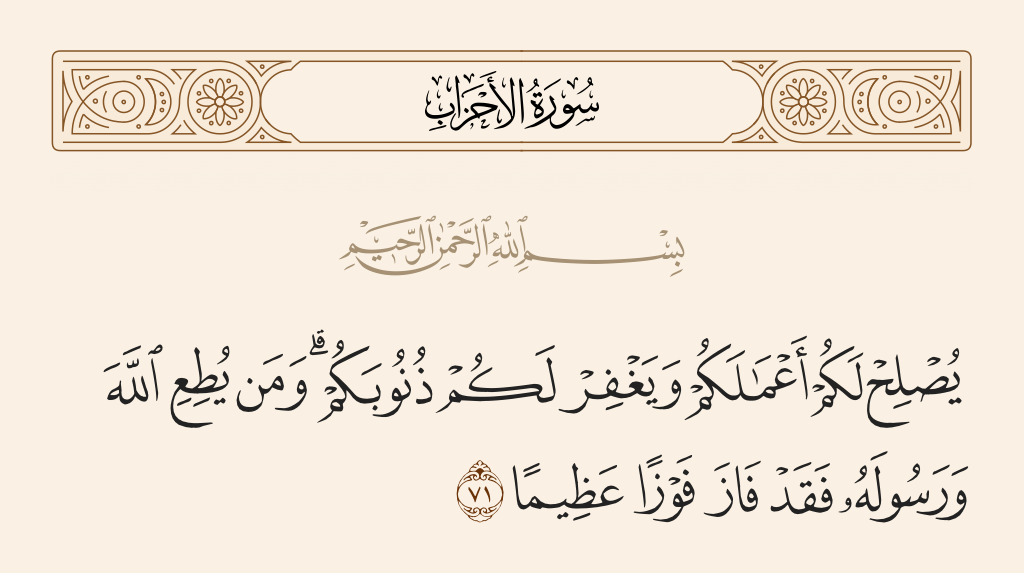 سُورَةُ الأَحْزَابِ
بِسْمِ ٱللَّهِ ٱلرَّحْمَٰنِ ٱلرَّحِيمِ
يُصْلِحْ لَكُمْ أَعْمَـٰلَكُمْ وَيَغْفِرْ لَكُمْ ذُنُوبَكُمْ ۗ وَمَن يُطِعِ ٱللَّهَ
وَرَسُولَهُۥ فَقَدْ فَازَ فَوْزًا عَظِيمًا ٧١